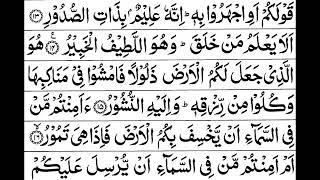 قَوْلَكُمْ اَوِ اجْهَرُوْا بِهٖ ؕ اِنَّهٗ عَلِیْمٌۢ بِذَاتِ الصُّدُوْرِ ﴿۱۳﴾
اَلَا یَعْلَمُ مَنْ خَلَقَ ؕ وَهُوَ اللَّطِیْفُ الْخَبِیْرُ ﴿۱۴﴾ هُوَ
الَّذِیْ جَعَلَ لَكُمُ الْاَرْضَ ذَلُوْلًا فَامْشُوْا فِیْ مَنَاكِبِهَا
وَكُلُوْا مِنْ رِّزْقِهٖ ؕ وَاِلَیْهِ النُّشُوْرُ ﴿۱۵﴾ ءَاَمِنْتُمْ مَّنْ
فِی السَّمَآءِ اَنْ یَّخْسِفَ بِكُمُ الْاَرْضَ فَاِذَا هِیَ تَمُوْرُ ﴿۱۶﴾
اَمْ اَمِنْتُمْ مَّنْ فِی السَّمَآءِ اَنْ یُّرْسِلَ عَلَیْكُمْ